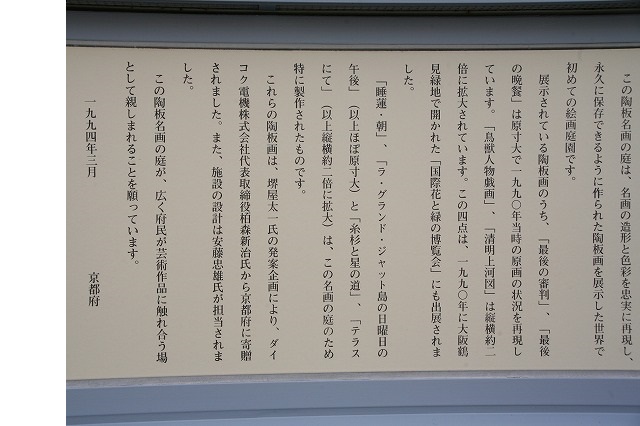 この陶板名画の庭は、名画の造形と色彩を忠実に再現し、
永久に保存できるように作られた陶板画を展示した世界で
初めての絵画庭園です。
展示されている陶板画のうち、「最後の審判」、「最後
の晩餐」は原寸大で一九九〇年当時の原画の状況を再現し
ています。「鳥獣人物戯画」、「清明上河図」は縦横約二
倍に拡大されています。この四点は、一九九〇年に大阪鶴
見緑地で開かれた「国際花と緑の博覧会」にも出展されま
した。
「睡蓮・朝」、「ラ・グランド・ジャット島の日曜日の
午後」（以上ほぼ原寸大）と「糸杉と星の道」、「テラス
にて」（以上縦横約二倍に拡大）は、この名画の庭のため
特に製作されたものです。
これらの陶板画は、堺屋太一氏の発案企画により、ダイ
コク電機株式会社代表取締役栢森新治氏から京都府に寄贈
されました。また、施設の設計は安藤忠雄氏が担当されま
した。
この陶板名画の庭が、広く府民が芸術作品に触れ合う場
として親しまれることを願っています。
一九九四年三月
京都府